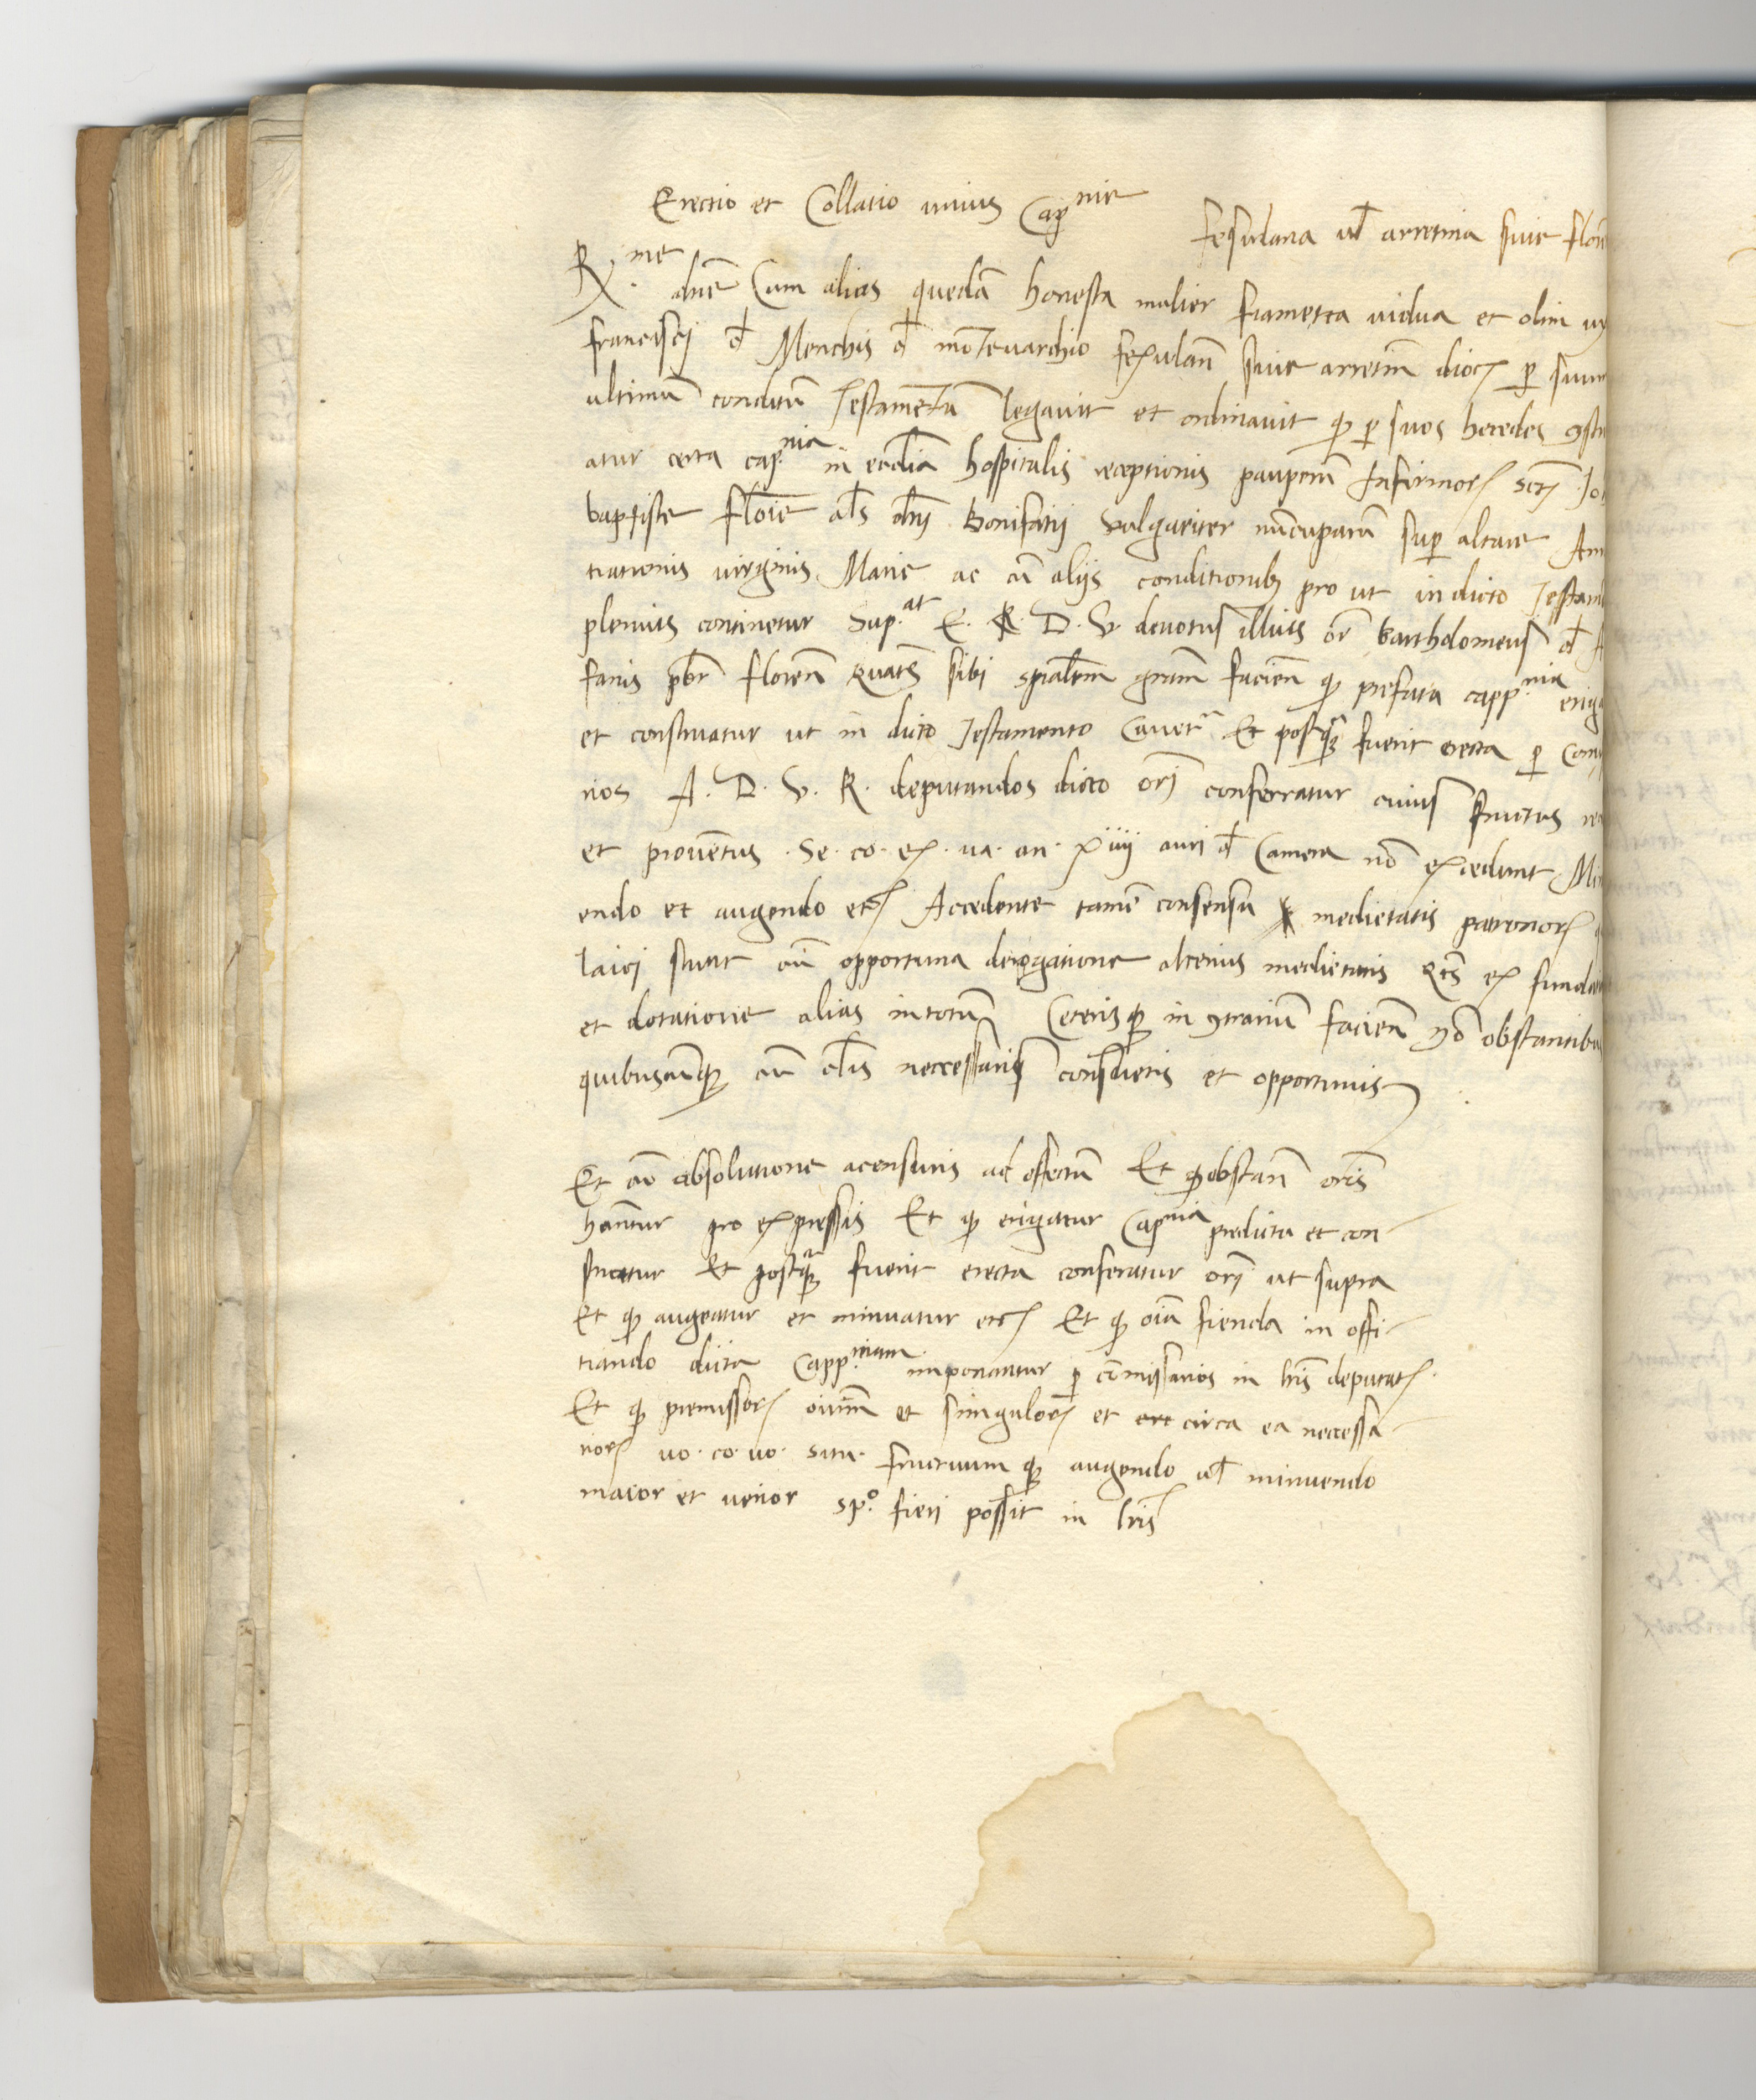 Erectio et Collatio unius Capnie
Fesulana ul arretina sive floren
R.me dne Cum alias quedā honesta mulier fiametta vidua et olim ux
francisci d Menchis d mōtevarchio fexulanī sive arretinī dioc p suum
ultimū conditū Testamētū legavit et ordinavit q p suos heredes 9stru
atur certa cap.nia in ecclīa hospitalis receptionis pauperū Infirmor scti Jo
baptiste Florīe als dni Bonifatii vulgariter nūcupatū sup altare An
tiationis virginis Marie ac cū aliis conditionib pro ut in dicto Testam
plenius continetur Sup.at E. R. D. V. devotus illius or bartholomeus d
fanis pbr florenī quatēs sibi spialem gram facienī q prefata capp.nia erig
et construatur ut in dicto Testamento Cavetr Et postq fuerit erecta p Com
rios A. D. V. R. deputandos dicto ori conferratur cuius fructus re
et proventus . Se . co . ex . va . an . xiiii auri d Camera nō excedunt Mi
endo et augendo etc Accedente tamē consensu medietatis patronor
laici sunt cū opportuna derogatione alterius medietatis ex funda
et dotatione alias in totū Ceterisq in 9trariū facienī nō obstantibu
quibuscūq cū clis neccessariis consuetis et opportunis
Et cū absolutione acensuris ad effectū Et q obstanī oris
hantur pro expressis Et q erigatur Capnia predicta et con
struatur Et postq fuerit erecta conferatur ori ut supra
Et q augeatur et minuatur etc Et q oia fienda in offi
tiando dicta Capp.niam imponantur p cōmissarios in his deputat
Et q premissor oiuim et singulor et circa ea necessa
rior uo . co . uo . situ . fructuum q augendo ul minuendo
maior et verior sp.o fieri possit in lris